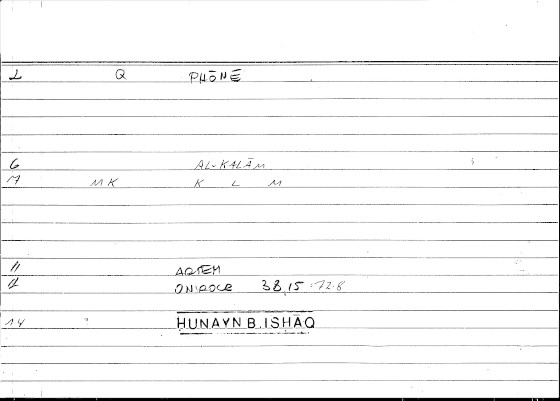 1 Q PHŌNĒ
6 AL-KALĀM
7 MK K L M
11 ARTEM
12 ONIROCR 38,15-72.8
14 HUNAYN B. ISHĀQ